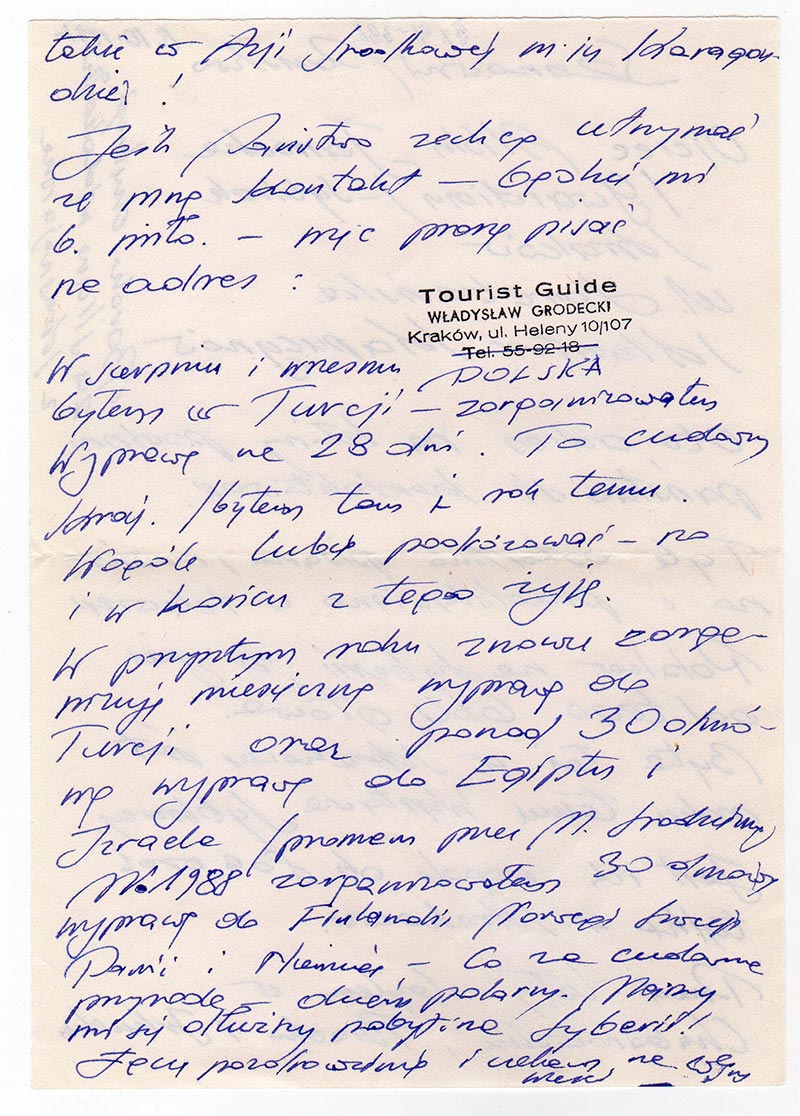 także w Azji Środkowej m.in Karagan-
dzie!
Jeśli Państwo zechcą utrzymać
ze mną kontakt – będzie mi
b. miło. – więc proszę pisać
na adres :
Tourist Guide
WŁADYSŁAW GRODECKI
Kraków, ul. Heleny 10/107
Tel. 55-92-18
POLSKA
W sierpniu i wrześniu
byłem w Turcji – zorganizowałem
wyprawę na 28 dni. To cudowny
kraj. /byłem tam i rok temu.
Wogóle lubię podróżować – no
i w końcu z tego żyję.
W przyszłym roku znowu zorga-
nizuję miesięczną wyprawę do
Turcji oraz ponad 30 dnio-
wą wyprawę do Egiptu i
Izraela /promem przez M. Śródziemne/
W r. 1988 zorganizowałem 30 dniową
wyprawę do Finlandii, Norwegii Szwecji
Danii i Niemiec – Co za cudowna
przyroda – dzień polarny. Marzy
mi się dłuższy pobyt na Syberii!
Łączę pozdrowienia i czekam na
wieści